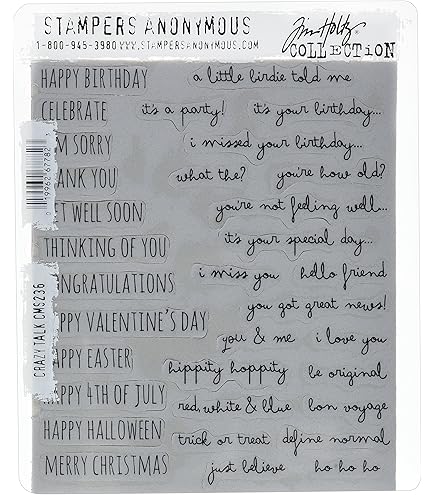 STAMPERS ANONYMOUS
1-800-945-3980 WWW.STAMPERSANONYMOUS.COM
Tim Holtz
COLLECTION
HAPPY BIRTHDAY a little birdie told me
CELEBRATE it's a party! it's your birthday...
I'M SORRY i missed your birthday...
THANK YOU what the? you're how old?
GET WELL SOON you're not feeling well...
THINKING OF YOU it's your special day...
CONGRATULATIONS i miss you hello friend
you got great news!
HAPPY VALENTINE'S DAY you & me i love you
HAPPY EASTER hippity hoppity be original
HAPPY 4TH OF JULY red, white & blue bon voyage
HAPPY HALLOWEEN trick or treat define normal
MERRY CHRISTMAS just believe ho ho ho
0 19962 67782 1
CRAZY TALK CMS236